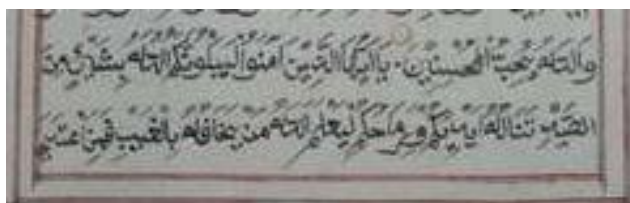 والله يحب المحسنين. يا ايها الذين امنوا ليبلونكم الله بشئ من
الصيد تناله ايديكم ورماحكم ليعلم الله من يخافه بالغيب فمن اعتدى